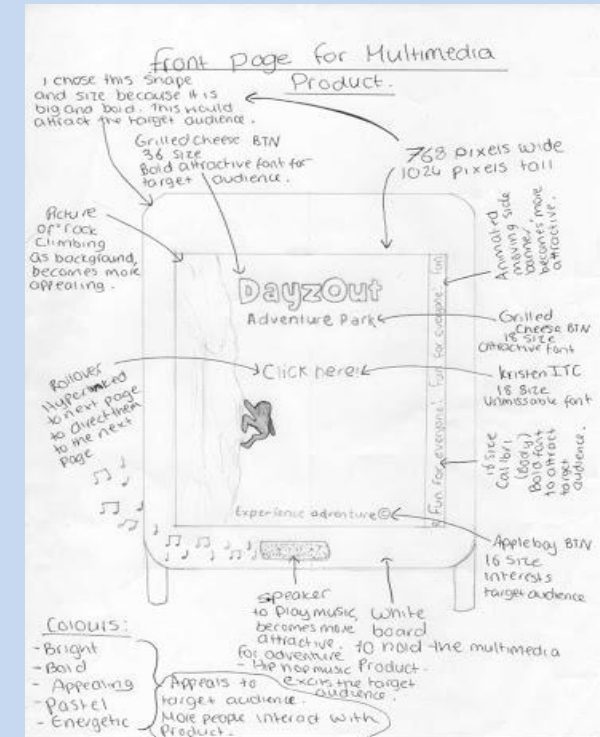 front page for Multimedia
Product.
I chose this shape
and size because it is
big and bold. This would
attract the target audience.
Grilled Cheese BTN
36 size
Bold attractive font for
target audience.
768 pixels wide
1024 pixels tall
Picture
of rock
climbing
as background,
becomes more
appealing.
Animated
moving side
banner,
becomes more
attractive.
DayzOut
Adventure Park
Grilled
Cheese BTN
18 size
attractive font
Click here!
Kristen ITC
18 size
unmissable font
Rollover
Hyperlinked
to next page
to direct them
to the next
page
Fun for everyone! Fun for everyone! Fun
18 size
Calibri
(Body)
Bold font
to attract
target
audience.
Experience adventure©
Applebay BTN
16 size
interests
target audience
speaker
to play music,
becomes more
attractive.
for adventure
- Hip hop music
excits the target
audience.
White
board
to hold the multimedia
Product.
Colours:
- Bright
- Bold
- Appealing
- Pastel
- Energetic
Appeals to
target audience.
More people interact with
Product.